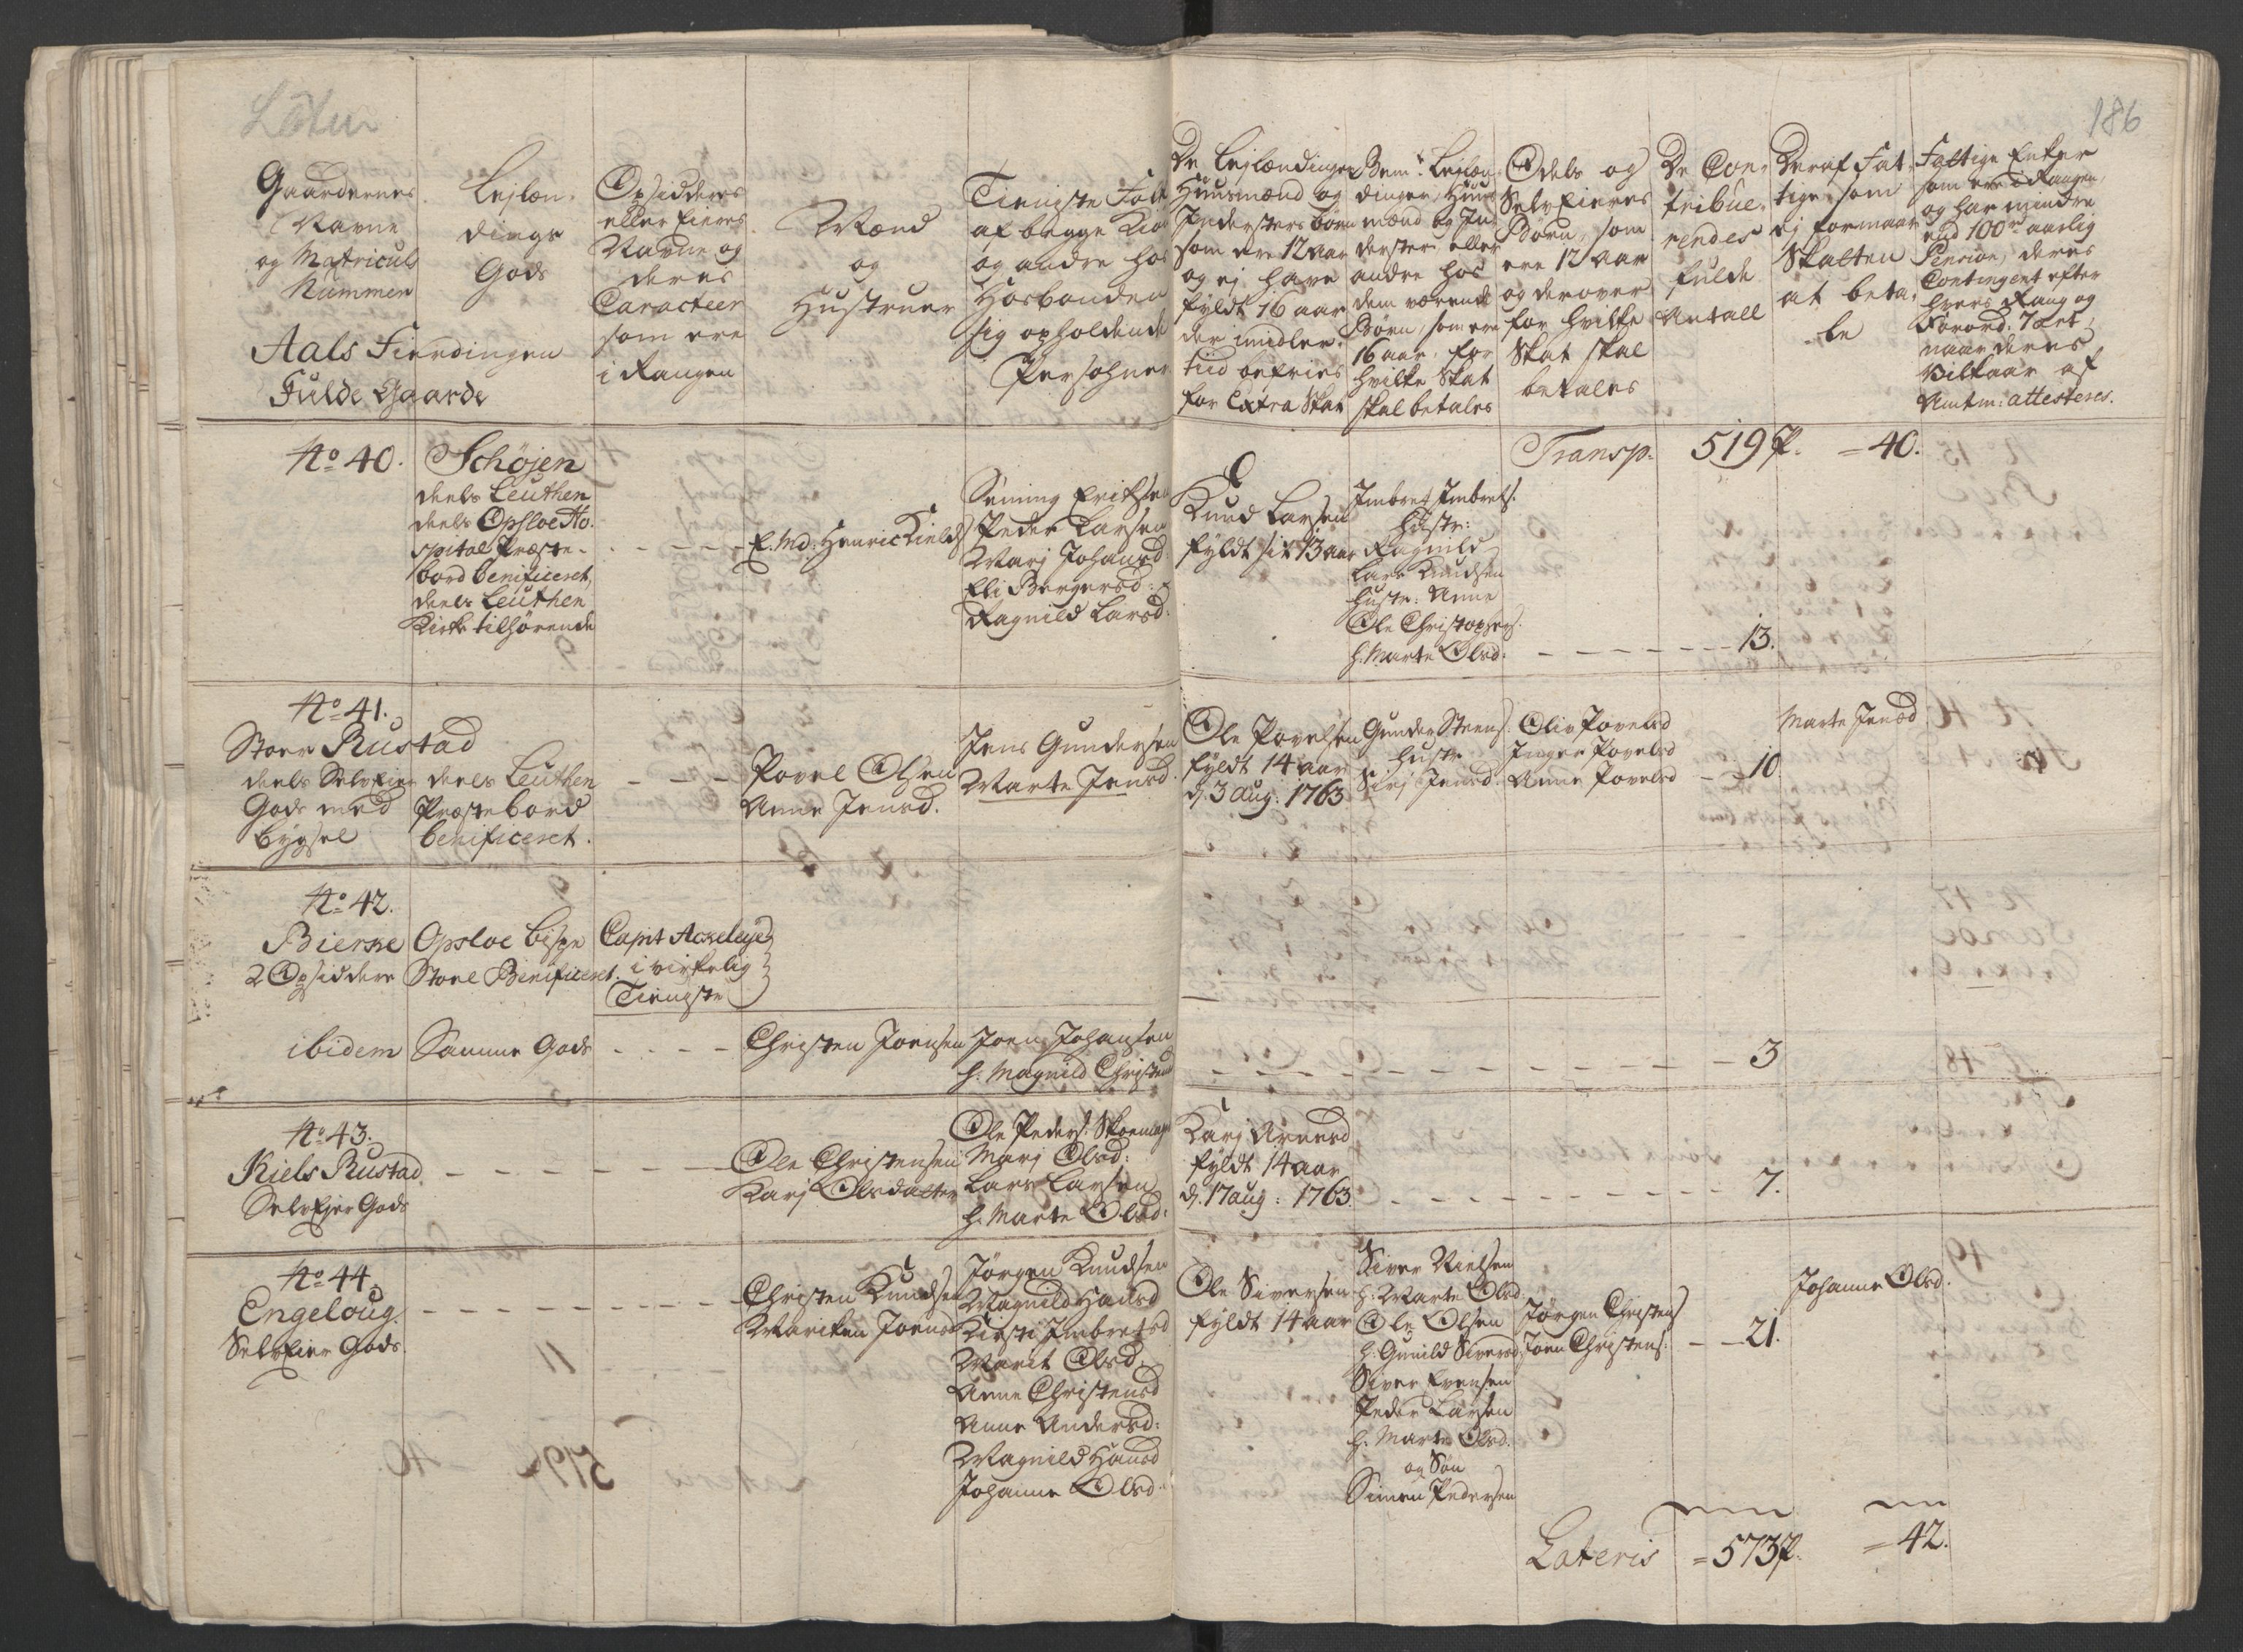 Löten
186
Gaardernes
Navne
og Matriculs
Nummer
Aals Fierdingen
Fulde Gaarde
Lejlæn-
dings
Gods
Opsidderes
eller Eieres
Navne og
deres
Caracteer
som ere
i Rangen
Mænd
og
Hustruer
Tieniste Folk
af begge Kiøn
og andre hos
Hosbonden
sig opholdende
Persohner
De Lejlændinger
Huusmænd og
Indersters børn
som ere 12 aar
og ej have
fyldt 16 aar
der imidler-
tiid befries
for Extra Skat
Bem.te Lejlæn-
dinger, Huus
mænd og In-
derster eller
andre hos
dem værende
Børn, som ere
16 aar, for
hvilke Skat
skal betales
Odels og
SelvEieres
Børn, som
ere 12 aar
og derover
for hvilke
Skat skal
betales
De Con-
tribue-
rendes
fulde
Antall
Deraf Fat-
tige som
ej formaar
Skatten
at beta-
le
Fattige Enker
som ere i Rangen,
og har mindre
end 100 rd aarlig
Pension, deres
Contingent efter
hvers Rang og
Forord. 7 art,
naar deres
Vilkaar af
Amtm: attesteres.
Transp. 519 P. = 40.
No 40. Schøjen
deels Leuthen
deels Opsloe Ho-
spital Præste-
bord benificeret,
deels Leuthen
Kirke tilhørende
E. Md: Henric Kields
Siming Erichsen
Peder Larsen
Marj Johansd:
Eli Bergersd:
Ragnild Larsd:
Knud Larsen
fyldt sit 13 aar
Imbret Imbrets.
hustr:
Ragnild
Lars Knudsen
hustr: Anne
Ole Christophers.
h. Marte Olsd:
13.
No 41.
Stoer Rustad
deels SelvEier
Gods med
bygsel
deels Leuthen
Præstebord
benificeret.
Povel Olsen
Anne Jensd.
Jens Gundersen
Marte Jensd.
Ole Povelsen
fyldt 14 aar
d. 3 Aug: 1763
Gunder Steens.
hustr
Sirj Jensd.
Oliv Povelsd
Inger Povelsd
Anne Povelsd
10.
Marte Jensd
No 42.
Bierke
2 Opsiddere
Opsloe bispe
Stoel Benificeret.
Capit Ackeleye
i virkelig
Tieniste
ibidem
Samme Gods
Christen Joensen
Joen Johansen
h. Magnild Christensd
3
No 43.
Kiels Rustad
SelvEjer Gods
Ole Christensen
Karj Olsdatter
Ole Peders. Skoemager
Marj Olsd:
Lars Larsen
h. Marte Olsd:
Karj Arnesd
fyldt 14 aar
d. 17 aug: 1763.
7.
No 44.
Engeloug.
SelvEier Gods.
Christen Knudsen
Mariken Joensd
Jørgen Knudsen
Magnild Hansd
Kirsti Imbretsd
Marit Olsd.
Anne Christensd
Anne Andersd:
Magnild Hansd
Johanne Olsd.
Ole Siversen
fyldt 14 aar
Siver Nielsen
h. Marte Olsd
Ole Olsen
h. Gunild Siversd.
Siver Evensen
Peder Larsen
h. Marte Olsd.
og Søn
Simen Pedersen
Jørgen Christens
Joen Christens.
21.
Johanne Olsd.
Lateris = 573 P. = 42.